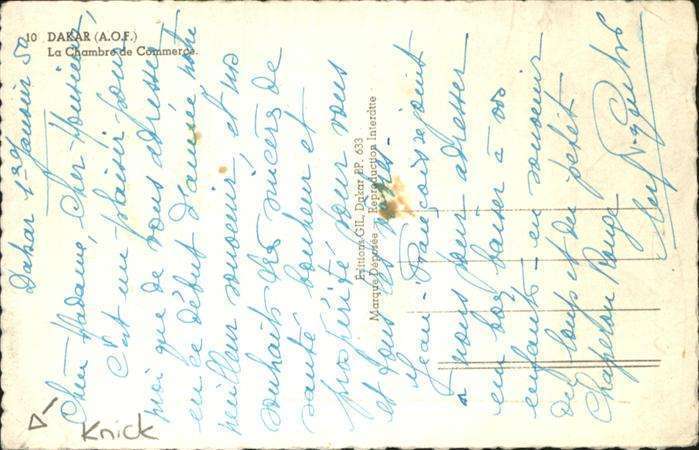 10 DAKAR (A.O.F.)
La Chambre de Commerce.
Dakar 1er Janvier 50
Chère Madame, Cher Monsieur,
C'est un plaisir pour
moi que de vous adresser
en ce début d'année notre
meilleur souvenir et nos
souhaits des succès de
santé bonheur et
prospérité pour vous
et tous les vôtres -
Jean-François se joint
à nous pour adresser
un bon baiser à vos
enfants - en souvenir
du loup et du petit
Chaperon Rouge
Editions GIL, Dakar BP. 633
Marque Déposée - Reproduction Interdite
Knick